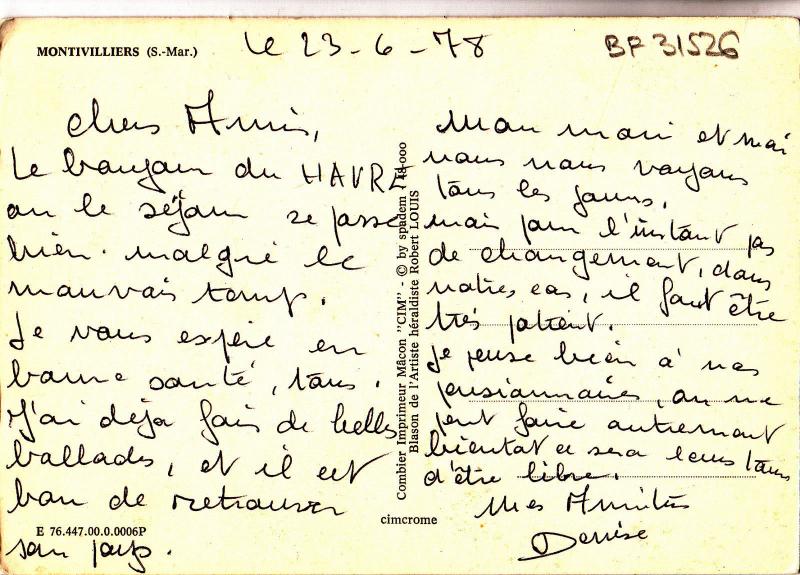 MONTIVILLIERS (S.-Mar.)
Le 23-6-78
BF 31526
chers Amis,
Le bonjour du HAVRE
ou le séjour se passe
bien. malgré le
mauvais temps.
Je vous espère en
bonne santé, tous.
J'ai déja fais de belles
ballades, et il est
bon de retrouver
son pays.
E 76.447.00.0.0006P
Combier Imprimeur Mâcon "CIM" - © by spadem
Blason de l'Artiste héraldiste Robert LOUIS
cimcrome
Mon mari et moi
nous nous voyons
tous les jours,
mais pour l'instant pas
de changement, dans
notres cas, il faut être
très patient.
Je pense bien à nos
pensionnaires, on ne
peut faire autrement
bientot ce sera leurs tours
d'être libre.
Mes Amitiés
Denise